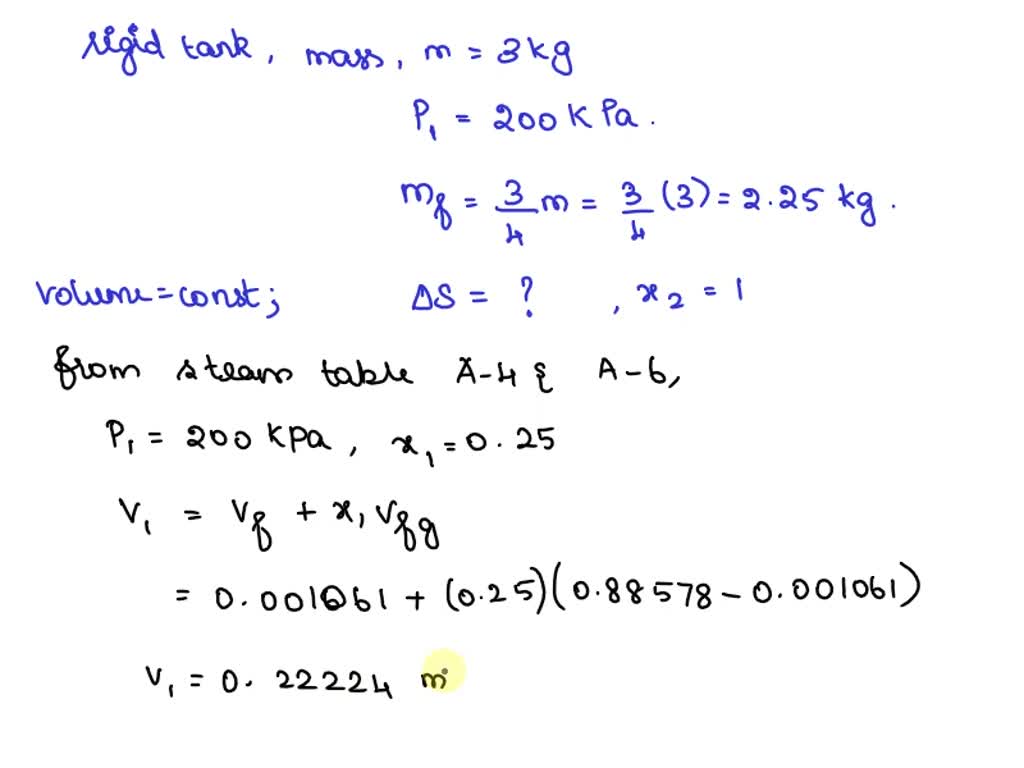 rigid tank, mass, m = 3 kg
P₁ = 200 K Pa.
m_f = 3/4 m = 3/4 (3) = 2.25 kg.
Volume = const; ΔS = ? , x₂ = 1
from steam table A-4 & A-6,
P₁ = 200 KPa, x₁ = 0.25
V₁ = V_f + x₁ V_fg
= 0.001061 + (0.25)(0.88578 - 0.001061)
V₁ = 0.22224 m